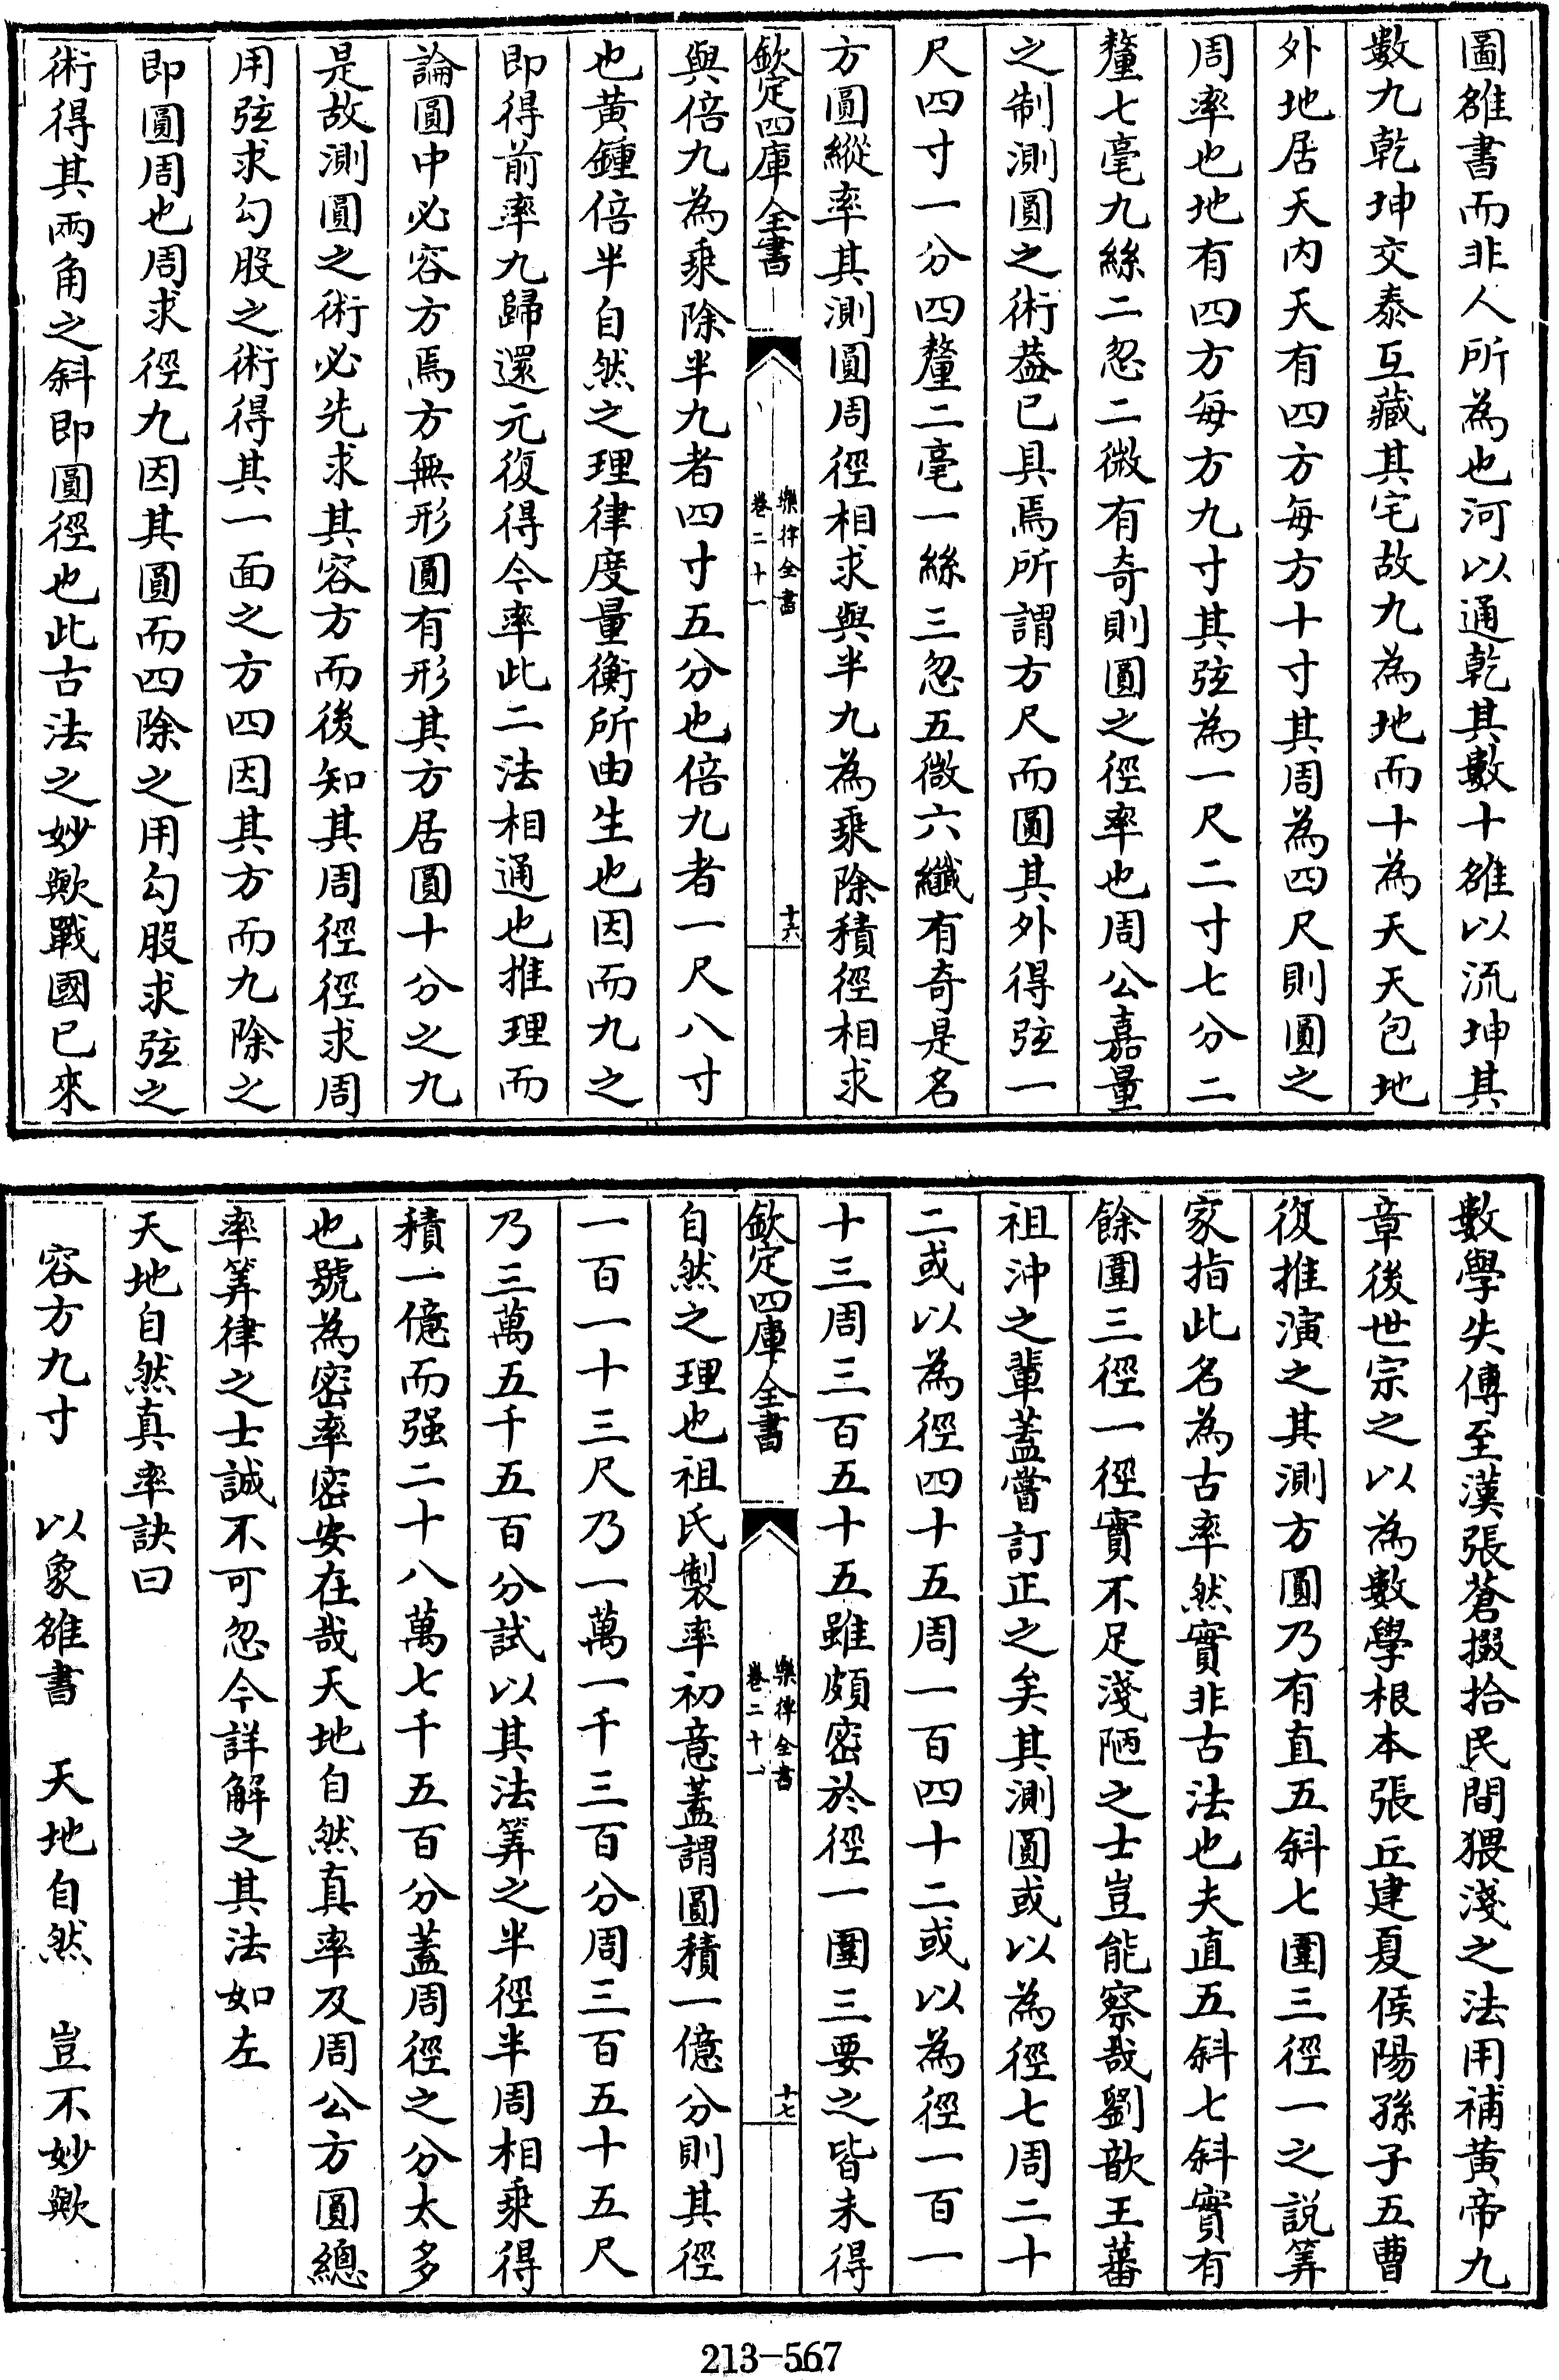 圖雒書而非人所為也河以通乾其數十雒以流坤其
數九乾坤交泰互藏其宅故九為地而十為天天包地
外地居天內天有四方每方十寸其周為四尺則圓之
周率也地有四方每方九寸其弦為一尺二寸七分二
釐七毫九絲二忽二微有奇則圓之徑率也周公嘉量
之制測圓之術葢已具焉所謂方尺而圓其外得弦一
尺四寸一分四釐二毫一絲三忽五微六纖有奇是名
方圓縱率其測圓周徑相求與半九為乘除積徑相求
欽定四庫全書
樂律全書
卷二十一
十六
與倍九為乘除半九者四寸五分也倍九者一尺八寸
也黃鍾倍半自然之理律度量衡所由生也因而九之
即得前率九歸還元復得今率此二法相通也推理而
論圓中必容方焉方無形圓有形其方居圓十分之九
是故測圓之術必先求其容方而後知其周徑徑求周
用弦求勾股之術得其一面之方四因其方而九除之
即圓周也周求徑九因其圓而四除之用勾股求弦之
術得其兩角之斜即圓徑也此古法之妙歟戰國已來
數學失傳至漢張蒼掇拾民間猥淺之法用補黃帝九
章後世宗之以為數學根本張丘建夏侯陽孫子五曹
復推演之其測方圓乃有直五斜七圍三徑一之說筭
家指此名為古率然實非古法也夫直五斜七斜實有
餘圍三徑一徑實不足淺陋之士豈能察哉劉歆王蕃
祖沖之輩蓋嘗訂正之矣其測圓或以為徑七周二十
二或以為徑四十五周一百四十二或以為徑一百一
十三周三百五十五雖頗密於徑一圍三要之皆未得
欽定四庫全書
樂律全書
卷二十一
十七
自然之理也祖氏製率初意蓋謂圓積一億分則其徑
一百一十三尺乃一萬一千三百分周三百五十五尺
乃三萬五千五百分試以其法筭之半徑半周相乘得
積一億而强二十八萬七千五百分蓋周徑之分太多
也號為密率密安在哉天地自然真率及周公方圓總
率筭律之士誠不可忽今詳解之其法如左
天地自然真率訣曰
容方九寸 以象雒書 天地自然 豈不妙歟
213-567